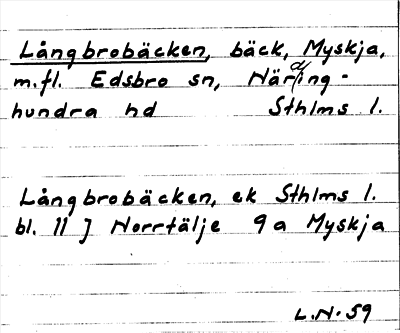 Långbrobäcken, bäck, Myskja,
m.fl. Edsbro sn, Närding-
hundra hd Sthlms l.
Långbrobäcken, ek Sthlms l.
bl. 11 J Norrtälje 9a Myskja
L.N. 59